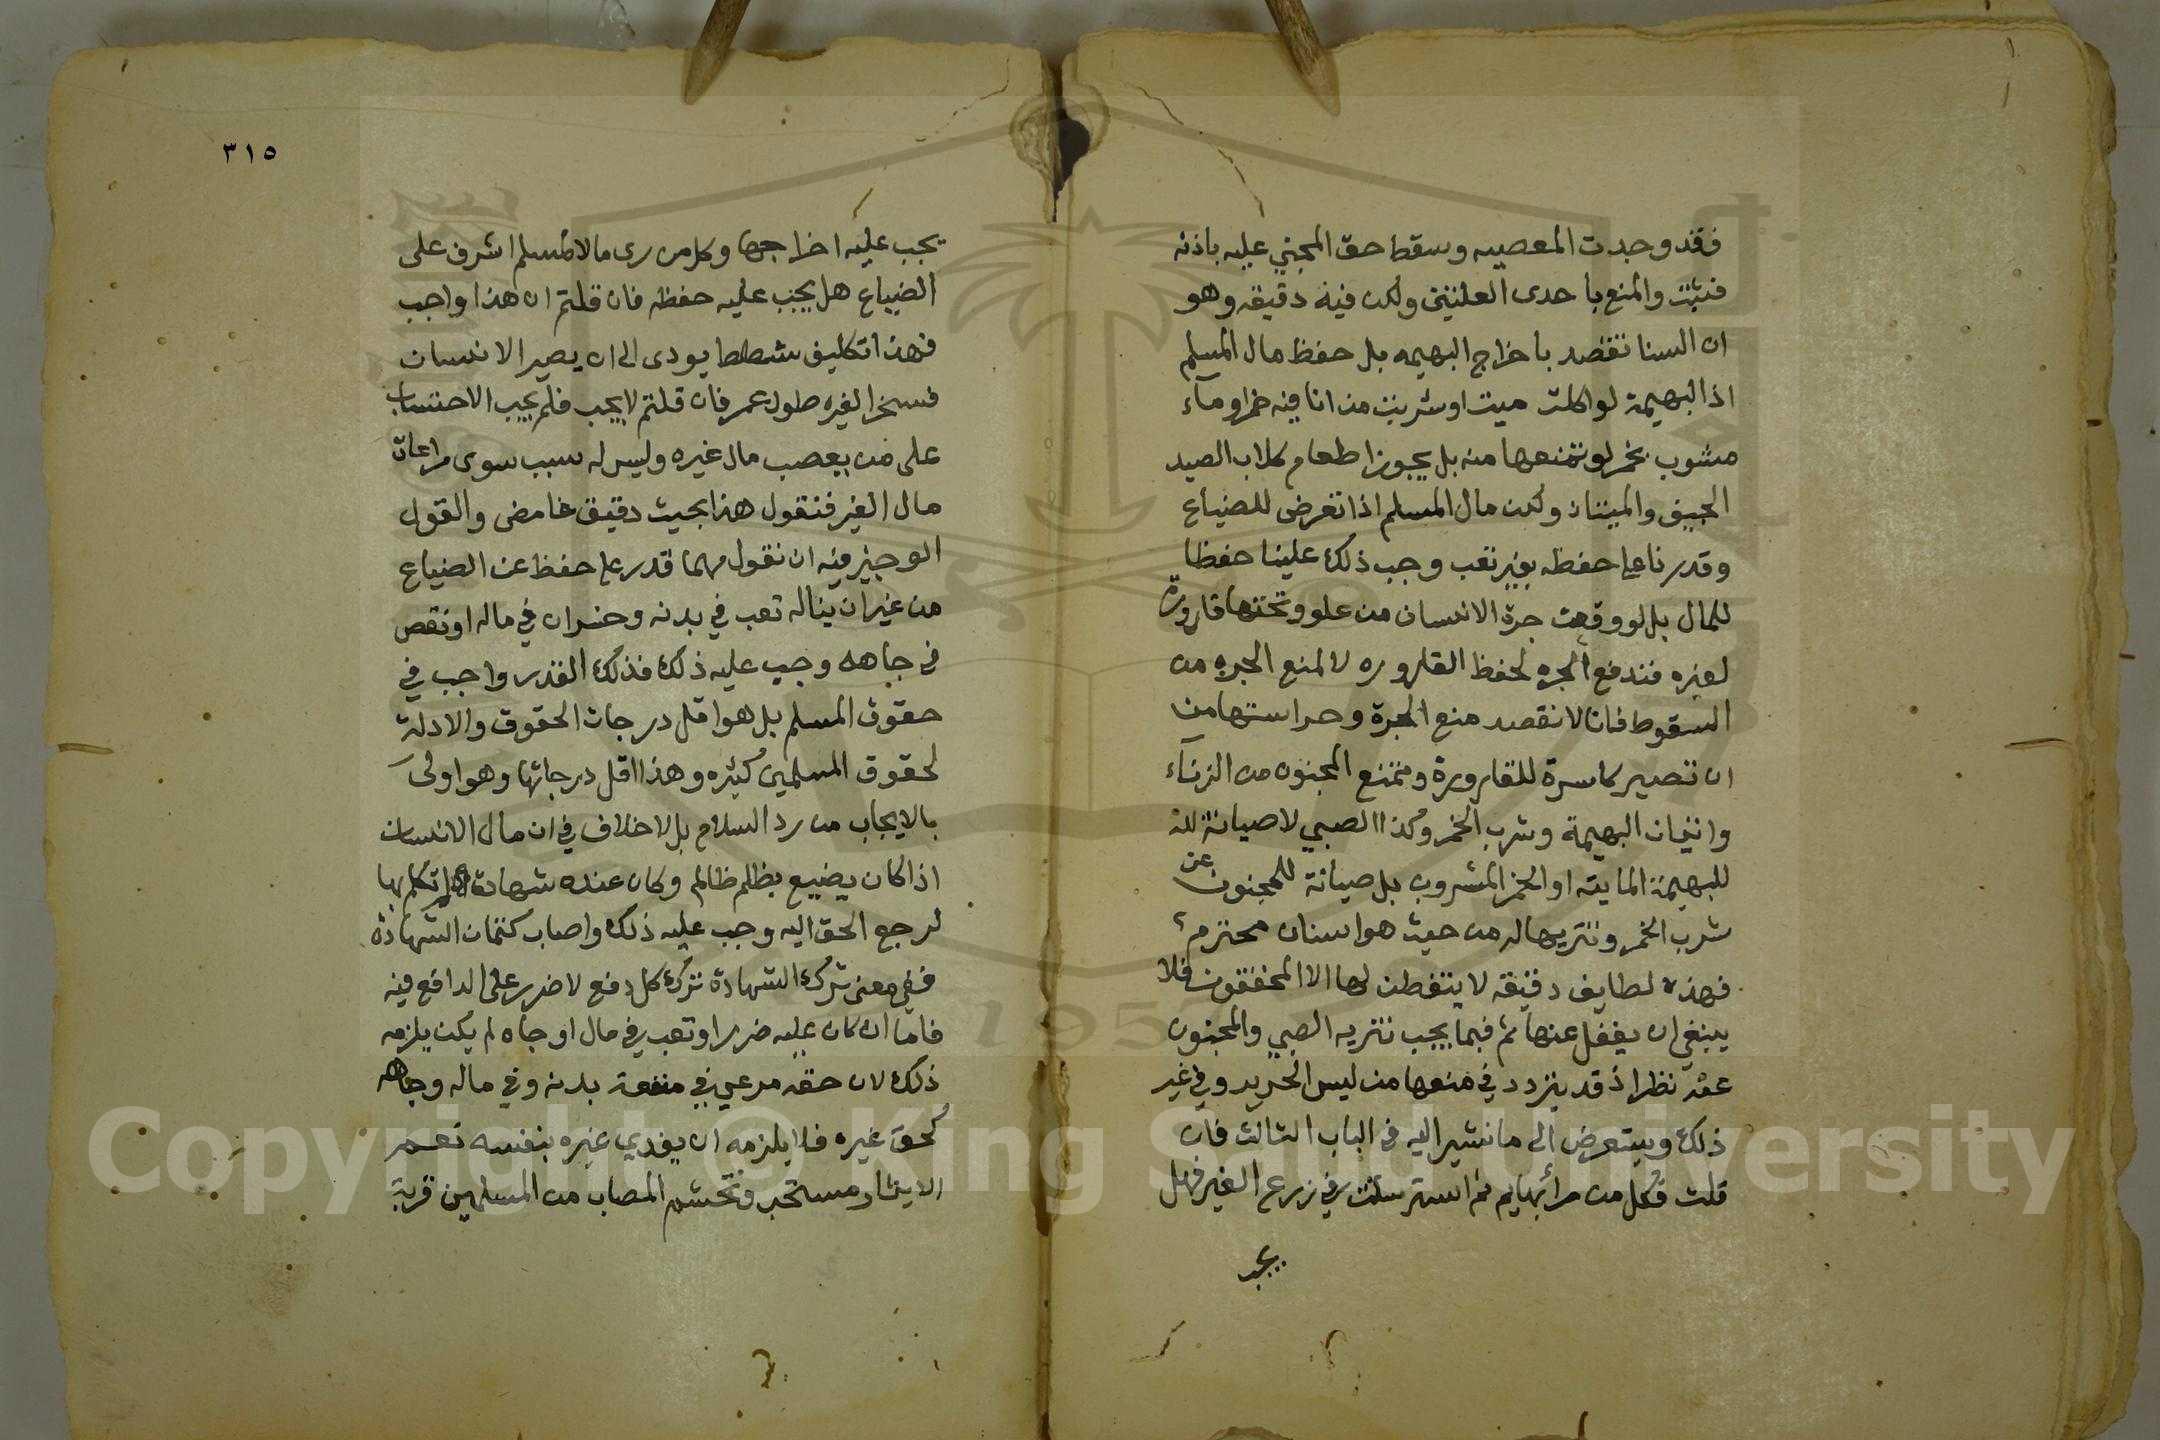 فقد وجدت المعصيه وسقط حق المجني عليه باذنه
فثبت والمنع باحدى العلتين ولكن فيه دقيقه وهو
ان السنا نقصد باخراج البهيمه بل حفظ مال المسلم
اذ البهيمة لو اكلت ميت او شربت من انا فيه خمر او مآء
مشوب بخمر لو نمنعها منه بل يجوز اطعام كلاب الصيد
الجيف والميتات ولكن مال المسلم اذا تعرض للضياع
وقدرنا على حفظه بغير تعب وجب ذلك علينا حفظا
للمال بل لو وقعت جرة الانسان من علو وتحتها قارورة
لغيره فندفع الجره لحفظ القاروره لا لمنع الجره من
السقوط فانا لا نقصد منع الجرة وحراستها من
ان تصير كاسرة للقارورة ونمنع المجنون من الزناء
واتيان البهيمة وشرب الخمر وكذا الصبي لا صيانة لله
للبهيمة الماتيه او الخمر المشروب بل صيانة للمجنون عن
شرب الخمر وتنزيها له من حيث هو انسان محترم
فهذه لطايف دقيقه لا يتفطن لها الا المحققون فلا
ينبغي ان يغفل عنها ثم فيما يجب تنزيه الصبي والمجنون
عنه نظر اذ قد يتردد في منعها من لبس الحرير وفي غير
ذلك وسيتعرض الى ما نشير اليه في الباب الثالث فان
قلت فكل من رأى بهايم قد استرسلت في زرع الغير فهل
يجب
٣١٥
يجب عليه اخراجها وكل من رى مالا لمسلم اشرف على
الضياع هل يجب عليه حفظه فان قلتم ان هذا واجب
فهذا تكليف شطط يودى الى ان يصير الانسان
مسخرا لغيره طول عمر فان قلتم لا يجب فلم يجب الاحتساب
على من يغصب مال غيره وليس له سبب سوى مراعات
مال الغير فنقول هذا بحيث دقيق غامض والقول
الوجيز فيه ان نقول مهما قدر على حفظ عن الضياع
من غير ان يناله تعب في بدنه وخسران في ماله او نقص
في جاهه وجب عليه ذلك فذلك القدر واجب في
حقوق المسلم بل هو اقل درجات الحقوق والادلة
لحقوق المسلمين كثيره وهذا اقل درجاتها وهو اولى
بالايجاب من رد السلام بل لا خلاف في ان مال الانسان
اذا كان يضيع بظلم ظالم وكان عنده شهادة لو تكلم بها
لرجع الحق اليه وجب عليه ذلك واصاب كتمان الشهادة
ففي معنى ترك الشهادة ترك كل دفع لا ضرر على الدافع فيه
فاما ان كان عليه ضرر او تعب في مال او جاه لم يكن يلزمه
ذلك لان حقه مرعي في منفعة بدنه وفي ماله وجاهه
كحق غيره فلا يلزمه ان يفدي غيره بنفسه نعم
الايثار مستحب وتحشم المصاب من المسلمين قربة
Copyright © King Saud University
1957